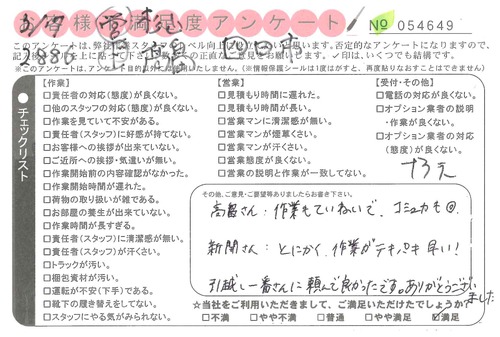 お客様満足度アンケート
№ 054649
※このアンケートは、アンケート目的以外には使用いたしません。(※情報保護シールは1度はがすと、再度貼りなおすことはできません)
チェックリスト
【作業】
□責任者の対応(態度)が良くない。
□他のスタッフの対応(態度)が良くない。
□作業を見ていて不安がある。
□責任者(スタッフ)に好感が持てない。
□お客様への挨拶が出来ていない。
□ご近所への挨拶・気遣いが無い。
□作業開始前の内容確認がなかった。
□作業開始時間が遅れた。
□荷物の取り扱いが雑である。
□お部屋の養生が出来ていない。
□作業時間が長すぎる。
□責任者(スタッフ)に清潔感が無い。
□責任者(スタッフ)が汗くさい。
□トラックが汚い。
□梱包資材が汚い。
□運転が不安(下手)である。
□靴下の履き替えをしてない。
□スタッフにやる気がみられない。
【営業】
□見積もり時間に遅れた。
□見積もり時間が長い。
□営業マンに清潔感が無い。
□営業マンが煙草くさい。
□営業マンが汗くさい。
□営業態度が良くない。
□営業の説明と作業が一致してない。
【受付・その他】
□電話の対応が良くない。
□オプション業者の説明・作業が良くない。
□オプション業者の対応(態度)が良くない。
その他、ご意見・ご要望等ありましたらお書き下さい。
高畠さん：作業もていねいで、コミュ力も◎.
新聞さん：とにかく、作業がテキパキ早い！
引越し一番さんに頼んで良かったです。ありがとうございました
☆当社をご利用いただきまして、ご満足いただけたでしょうか
□不満 □やや不満 □普通 □やや満足 ☑満足